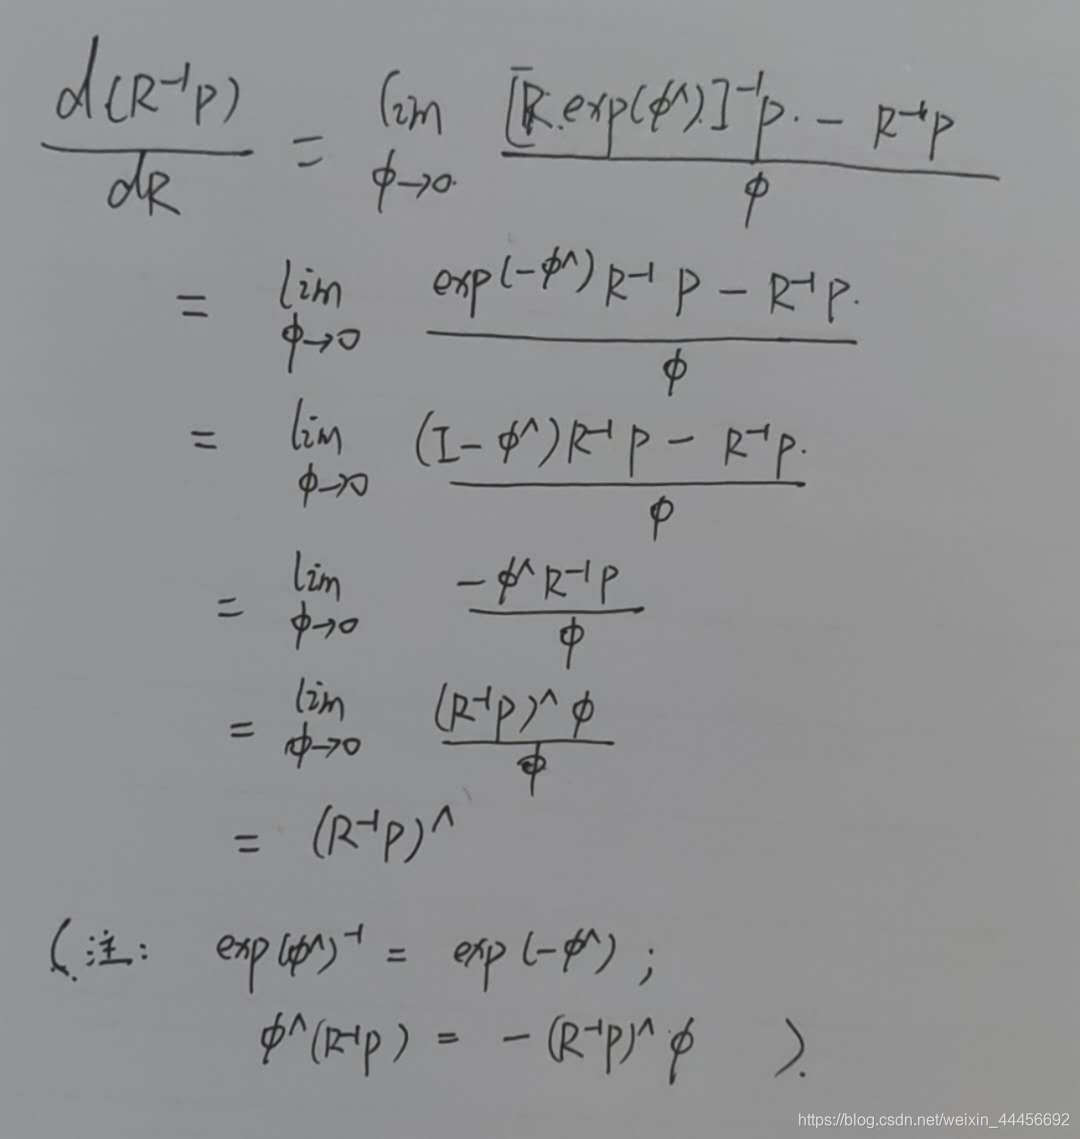 d(R⁻¹p)/dR = lim ϕ→0 ([R.exp(ϕ^)]⁻¹p. - R⁻¹p)/ϕ
= lim ϕ→0 (exp(-ϕ^) R⁻¹ p - R⁻¹p.)/ϕ
= lim ϕ→0 ((I - ϕ^)R⁻¹p - R⁻¹p.)/ϕ
= lim ϕ→0 (-ϕ^R⁻¹p)/ϕ
= lim ϕ→0 ((R⁻¹p)^ϕ)/ϕ
= (R⁻¹p)^
(注: exp(ϕ^)⁻¹ = exp(-ϕ^) ;
ϕ^(R⁻¹p) = -(R⁻¹p)^ϕ ).
https://blog.csdn.net/weixin_44456692